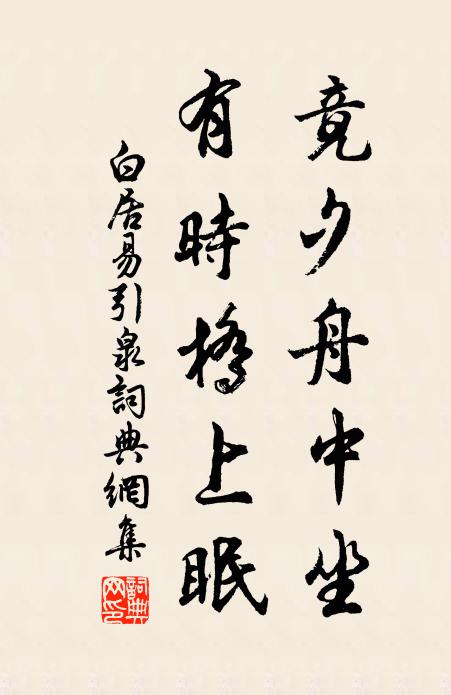 竟夕舟中坐
有時橋上眠
白居易引泉詞典網集
詞典網印